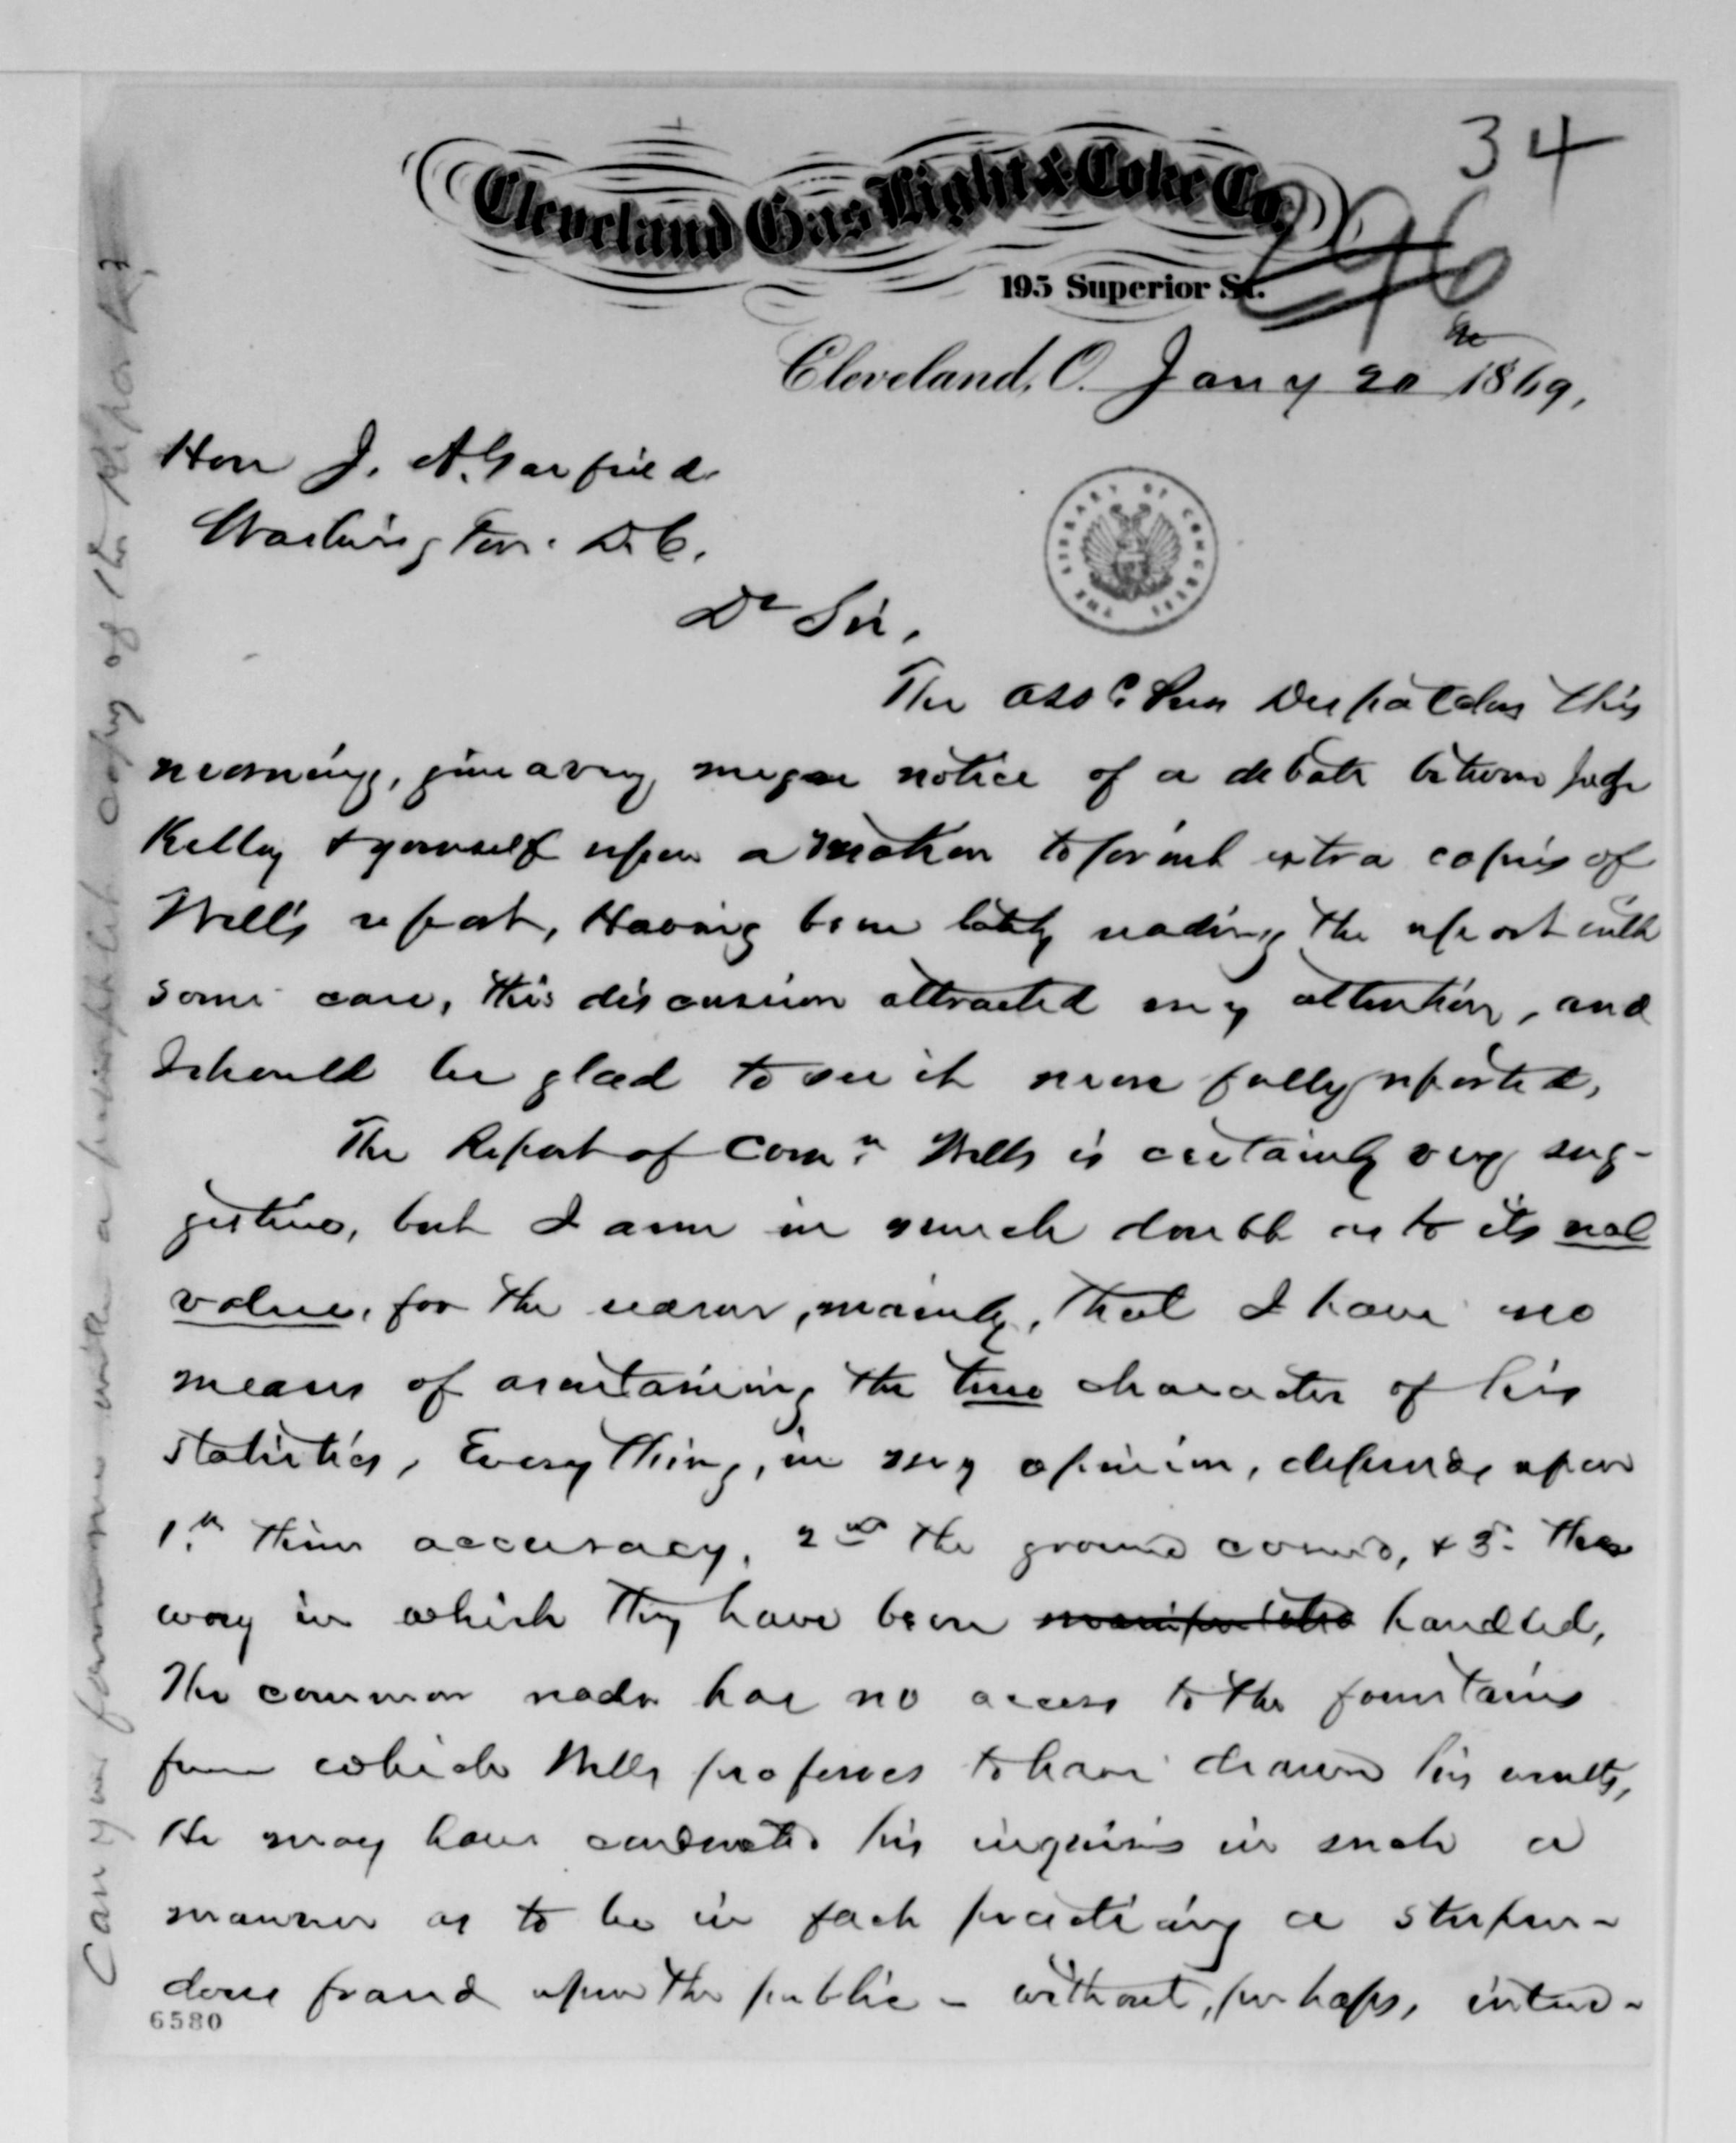 34
296
Cleveland Gas Light & Coke Co.
195 Superior St.
Cleveland, O. Jany 20th 1869,
Hon J. A. Garfield
Washington. D.C.
THE LIBRARY OF CONGRESS
Dr Sir,
The Assd Press Despatches this
morning, give a very meger notice of a debate between Judge
Kelley & yourself upon a motion to print extra copies of
Wells report, Having been lately reading the report with
some care, this discussion attracted my attention, and
I should be glad to see it more fully reported,
The Report of Comr Wells is certainly very sug-
gestive, but I am in much doubt as to its real
value, for the reason, mainly, that I have no
means of ascertaining the true character of his
statistics, Every thing, in my opinion, depends upon
1st their accuracy, 2nd the ground covered, & 3d the
way in which they have been manipulated handled,
The common reader has no access to the fountains
from which Wells professes to have drawn his results,
He may have conducted his inquiries in such a
manner as to be in fact practicing a stupen-
dous fraud upon the public - without, perhaps, inten-
6580
Can you favor me with a pamphlet copy of the Report?